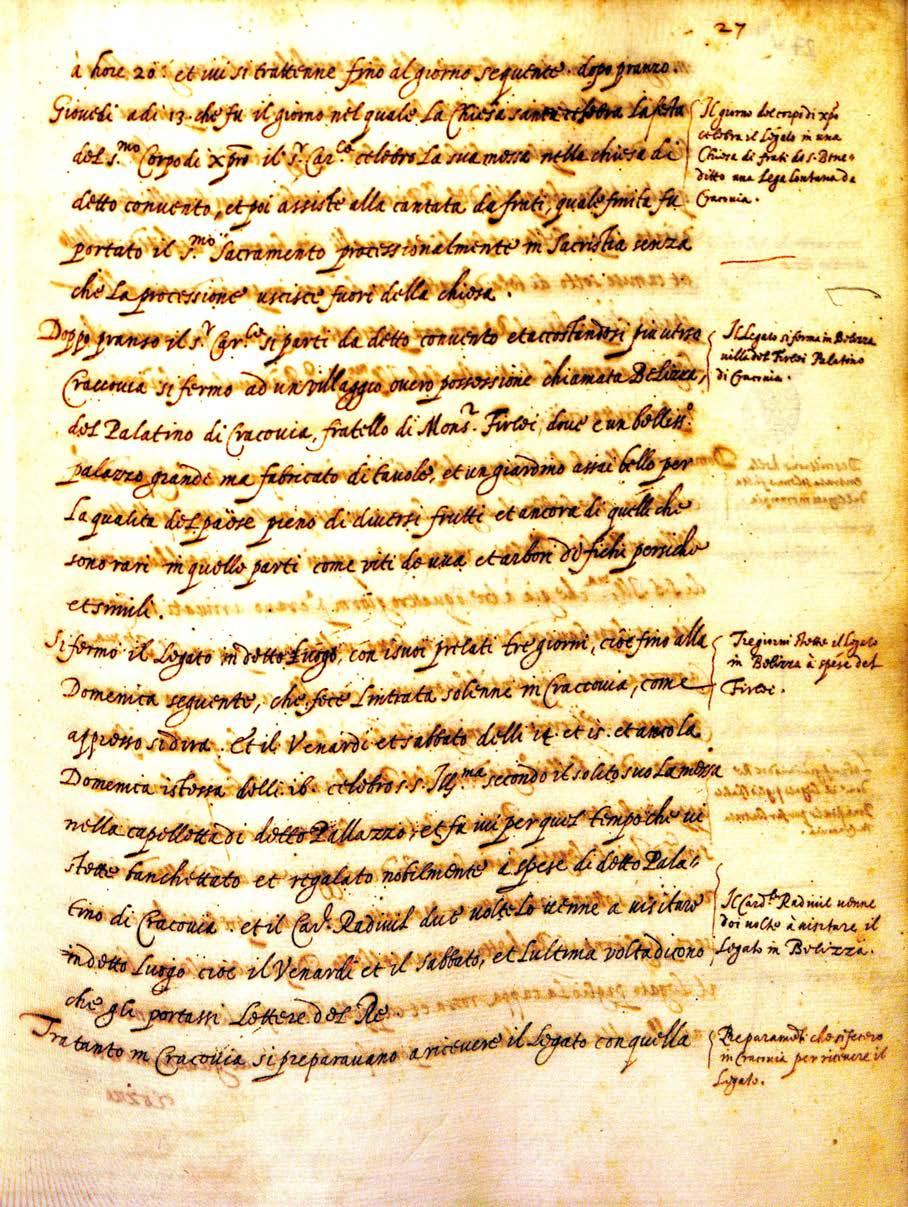 27
à hore 20: et ivi si trattenne fino al giorno sequente dopo pranzo.
Giovedi adi 13. che fu il giorno nel quale La Chiesa santa celebra La festa
del s.mo Corpo di xpro il s.r Car.le celebro La sua messa nella chiesa di
detto convento, et poi assiste alla cantata da frati, quale finita fu
portato il s.mo Sacramento processionalmente in Sacristia senza
che La processione uscisce fuori della chiesa.
Doppo pranso il s.r Car.le si parti da detto convento et accostandosi piu verso
Craccovia si fermo ad un villaggio overo possessione chiamata Belizza,
del Palatino di Cracovia, fratello di Mons.r Firlei, dove e un belliss.o
palazzo grande ma fabricato di tavole, et un giardino assai bello per
La qualita del paese pieno di diversi frutti et ancora di quelli che
sono rari in quelle parti come viti de uva et arbori di fichi persiche
et simili.
Si fermo il Legato in detto Luogo, con i suoi prelati tre giorni, cioe fino alla
Domenica seguente, che fece L'intrata solenne in Craccovia, come
appresso si dira. Et il Venardi et sabbato delli 14. et 15. et anco la
Domenica istessa delli 16. celebro s.s. Ill.ma secondo il solito suo La messa
nella capelletta di detto Pallazzo: et fu ivi per quel tempo che vi
stette banchettato et regalato nobilmente à spese di detto Pala=
tino di Cracovia. et il Car.l Radivil due volte lo venne a visitare
in detto Luogo cioe il Venardi et il sabbato, et L'ultima volta dicono
che gli portassi Lettere del Re.
Tra tanto in Cracovia si preparavano a ricevere il Legato con quella
Il giorno del corpo di xpo
celebra il Legato in una
Chiesa di frati de s. Bene=
ditto una Lega lontana da
Cracovia.
Il Legato si ferma in Belizza
villa del Firlei Palatino
di Cracovia.
Tre giorni stette il Legato
in Belizza à spese del
Firlei.
Il Card.l Radivil venne
doi volte à visitare il
Legato in Belizza.
Preparamenti che si fecero
in Cracovia per ricevere il
Legato.